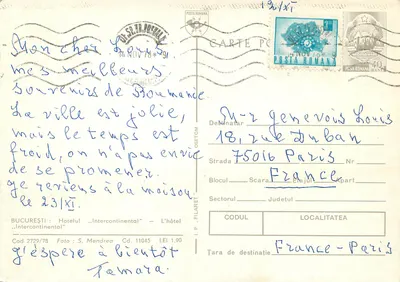 Mon cher Louis
mes meilleurs
souvenirs de Roumanie
La ville est jolie,
mais le temps est
froid, on n'a pas envie
de se promener.
Je reviens à la maison
le 23/XI.
BUCUREŞTI: Hotelul „Intercontinental" — L'hôtel
„Intercontinental"
Cod. 2729/78 Foto: S. Mendrea Cd. 11045 LEI 1,00
J'espère à bientôt
Tamara.
CARTE PO
POSTA ROMANA
M-r Genevois Louis
18, rue Duban
Strada Nr.
75016 Paris
Blocul Scara Apart.
France
Sectorul Judetul
CODUL LOCALITATEA
Ţara de destinaţie France-Paris